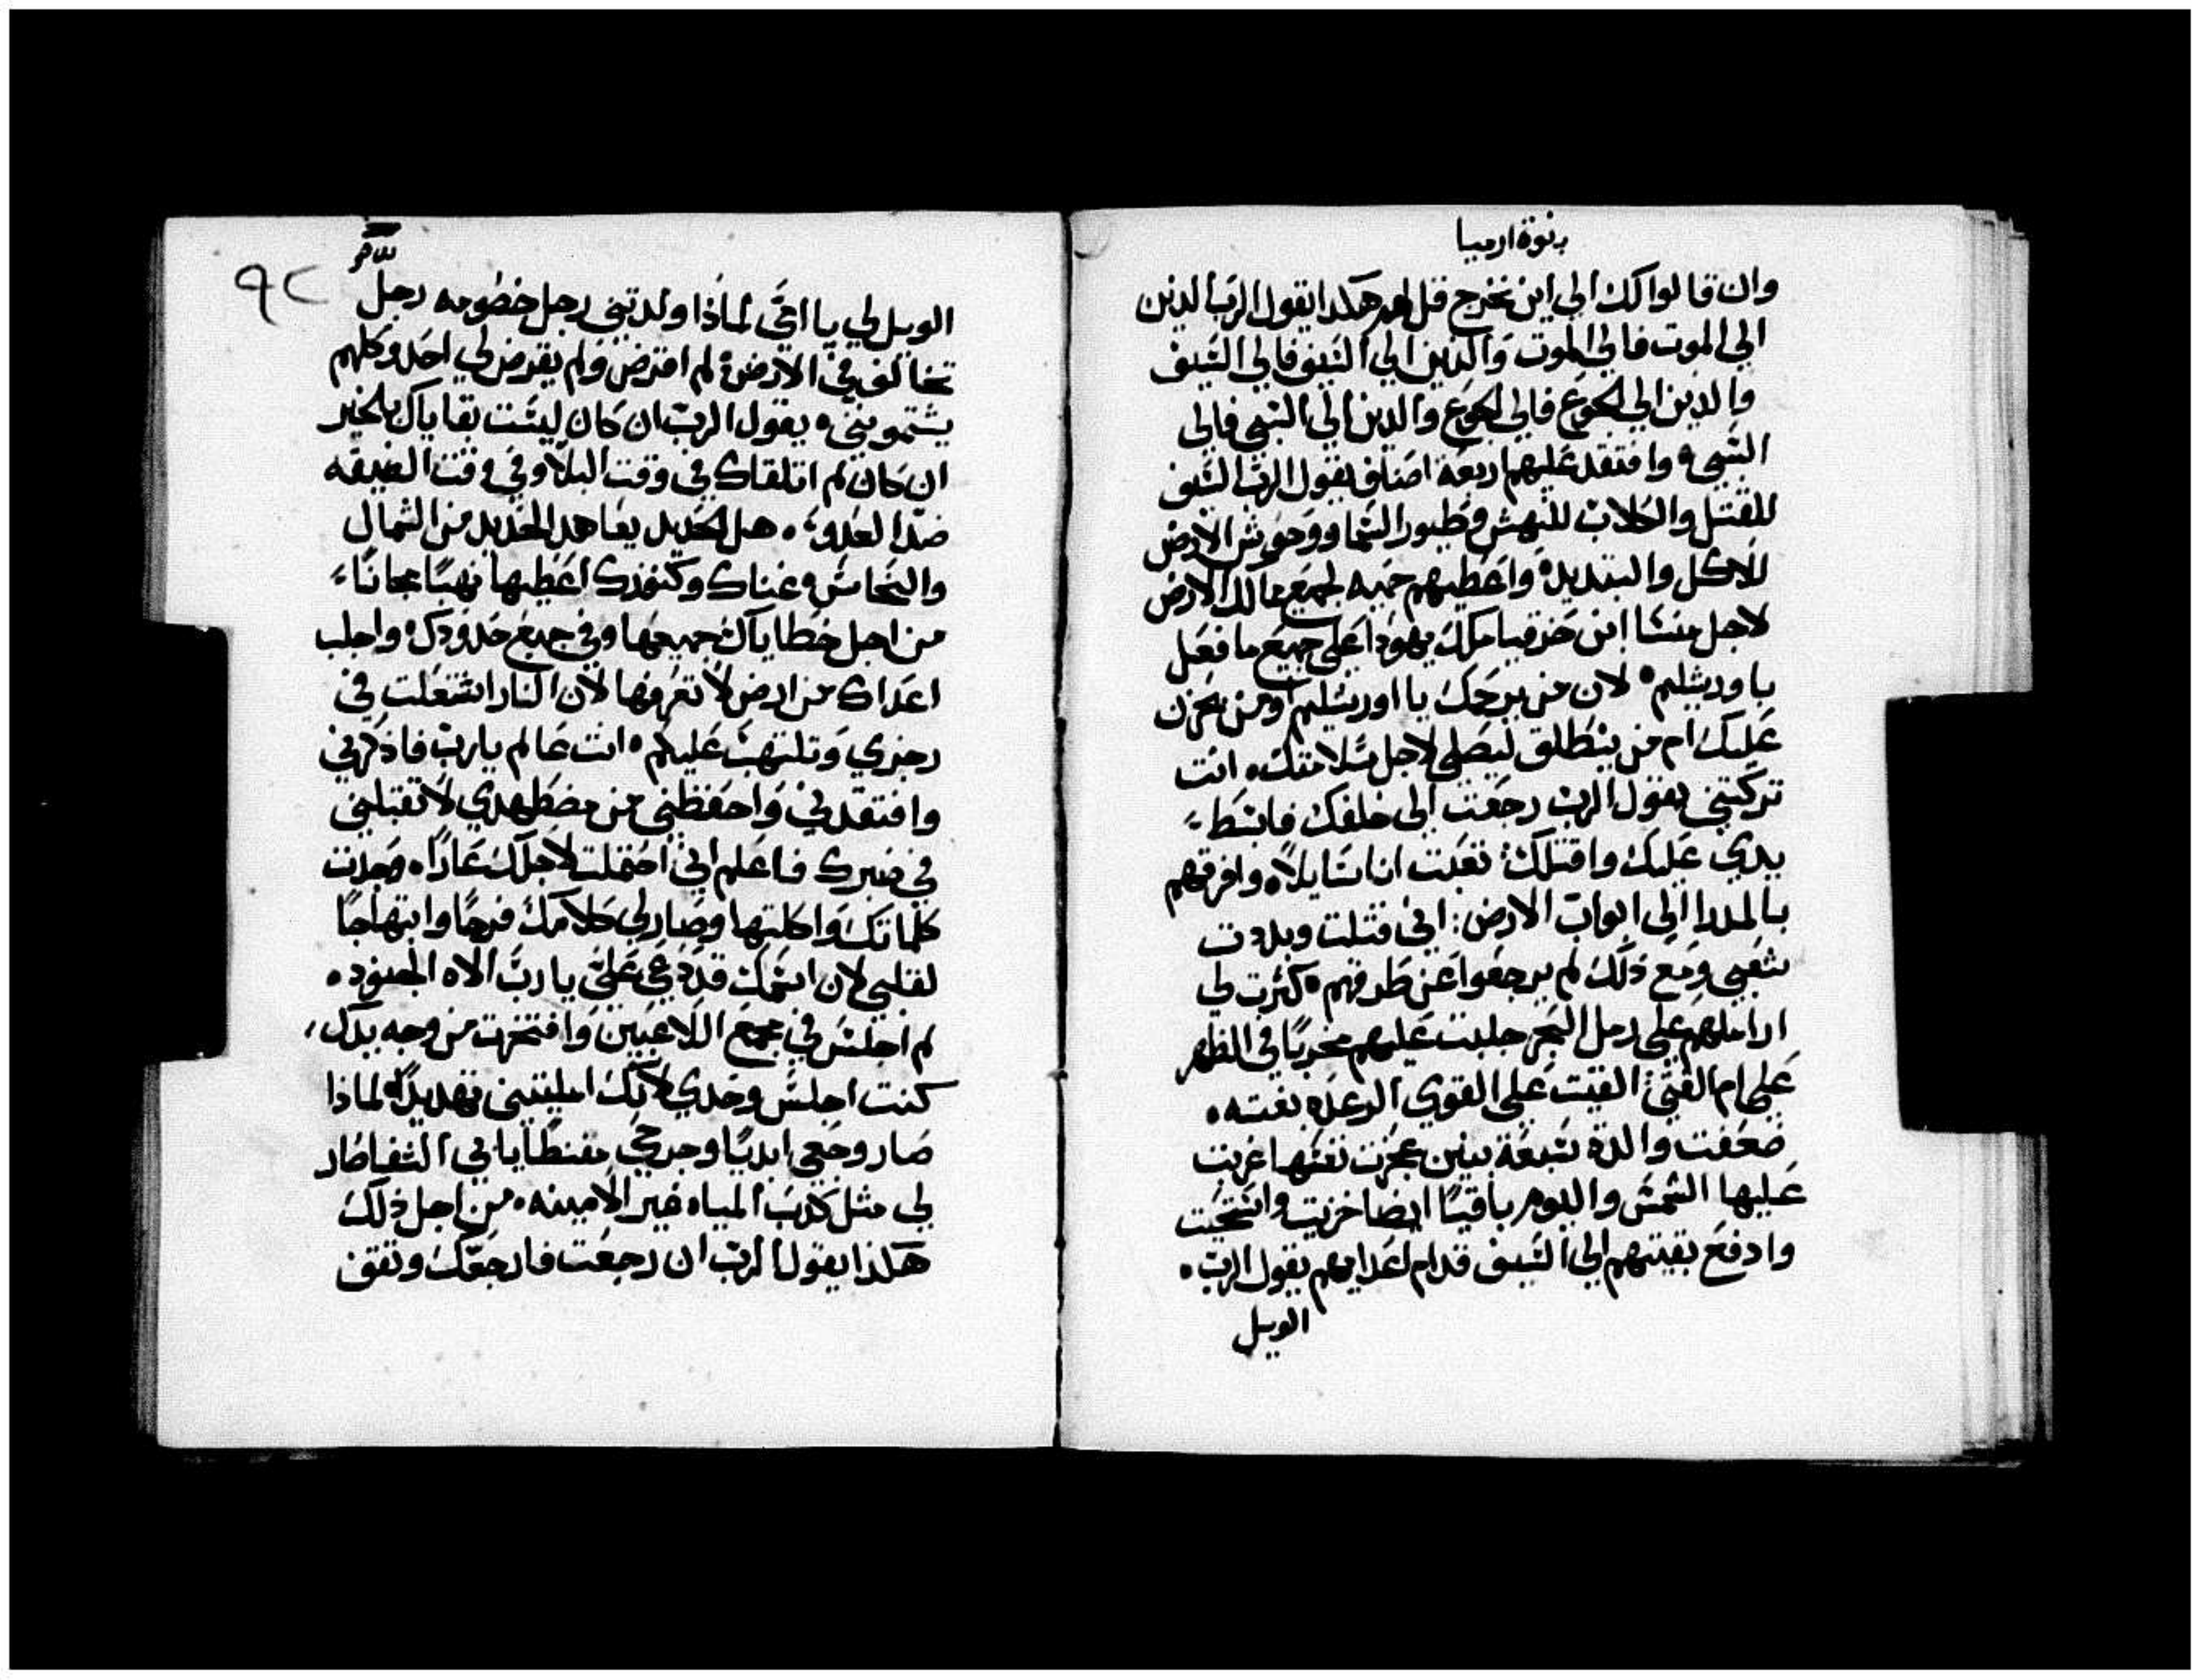 بنوة ارميا
وان قالوا لك الي اين نخرج قل لهم هكدا يقول الرب الدين
الي الموت فالي الموت والدين الي السيف فالي السيف
والدين الي الجوع فالي الجوع والدين الي السبي فالي
السبي وافتقد عليهم اربعة اصناف يقول الرب السيف
للقتل والكلاب للنهش وطيور السما ووحوش الارض
للاكل والتبديد واعطيهم حميه لجميع ممالك الارض
لاجل منسا ابن حزقيا ملك يهودا علي جميع ما فعل
باورشليم لان من يرحمك يا اورشليم ومن يحزن
عليك ام من ينطلق ليصلي لاجل سلامتك انت
تركتني يقول الرب رجعت الي خلفك فابسط
يدي عليك واقتلك تعبت انا سايلا وافرقهم
بالمدرا الي ابواب الارض اني قتلت وبددت
شعبي ومع ذلك لم يرجعوا عن طرقهم كثرت لي
اراملهم علي رمل البحر جلبت عليهم مخربا في الظهر
علي ام الفتي القيت علي القوي الرعده بغته
ضعفت والدة سبعة بنين عجزت نفسها غربت
عليها الشمس واليوم باقيا ايضا خزيت واستحيت
وادفع بقيتهم الي السيف قدام اعدايهم يقول الرب
الويل
٩٢
الويل لي يا امي لماذا ولدتني رجل خصومه رجل
تخالف في الارض لم اقترض ولم يقرض لي احد وكلهم
يشتموني يقول الرب ان كان ليست بقاياك بالخير
ان كان لم اتلقاك في وقت البلا وفي وقت الضيقه
ضد العدو هل الحديد يعاهد الحديد من الشمال
والنحاس غناك وكنوزك اعطيها نهبا مجانا
من اجل خطاياك جميعها وفي جميع حدودك واجلب
اعداك من ارض لا تعرفها لان النار اشتعلت في
رجزي وتلتهب عليكم انت عالم يارب فاذكرني
وافتقدني واحفظني من مضطهدي لا تقبلني
في صبرك فاعلم اني احتملت لاجلك عارا وجدت
كلماتك واكلتها وصار لي كلامك فرحا وابتهاجا
لقلبي لان اسمك قد دعي علي يا رب الاه الجنود
لم اجلس في مجمع اللاعبين وافتخرت من وجه يدك
كنت اجلس وحدي لانك امليتني تهديدا لماذا
صار وجعي ابديا وجرحي مقنطا يابي الشفا صار
لي مثل كدب المياه غير الامينه من اجل ذلك
هكذا يقول الرب ان رجعت فارجعك وتقف